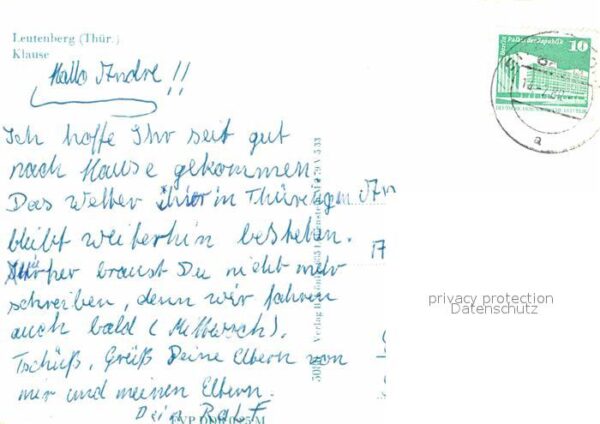 Leutenberg (Thür.)
Klause
Hallo Andre!!
Ich hoffe Ihr seit gut
nach Hause gekommen.
Das Wetter hier in Thüringen
bleibt weiterhin bestehen.
braust Du nicht mehr
schreiben, denn wir fahren
auch bald (Mittwoch).
Tschüß, Grüß Deine Eltern von
mir und meinen Eltern.
Dein Ralf
EVP
M
Verlag
Berlin Palast der Republik
10
a
privacy protection
Datenschutz